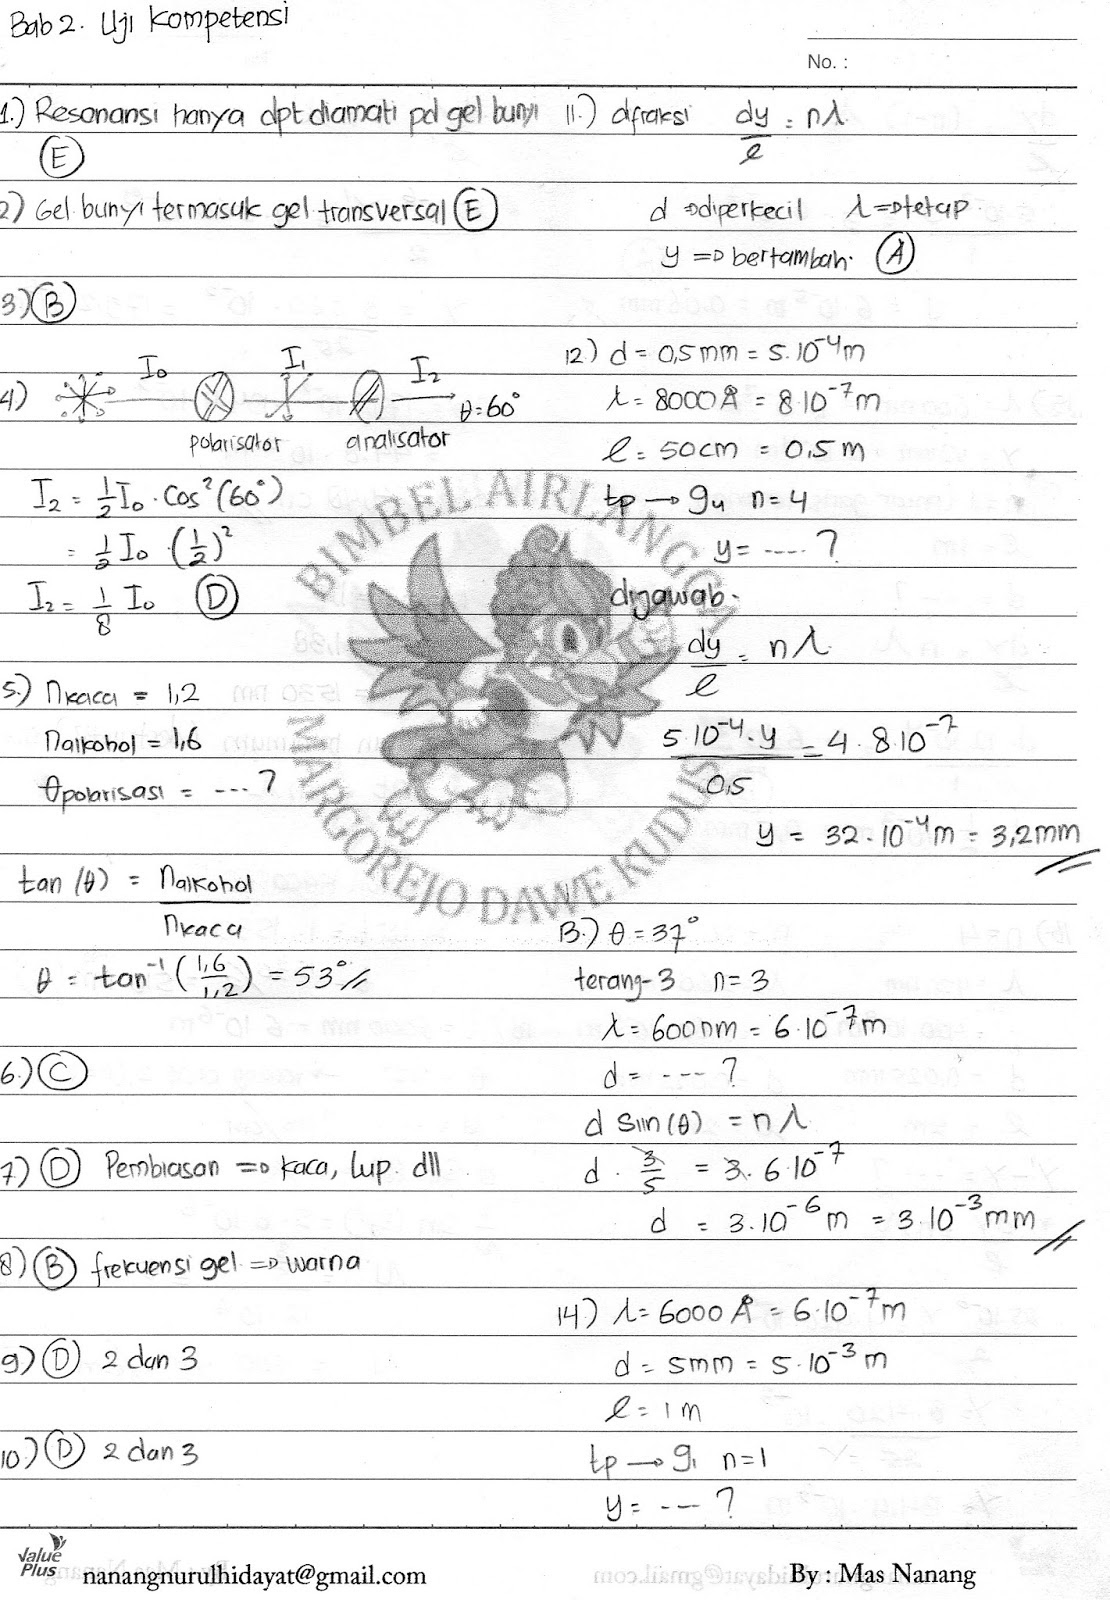 Bab 2. Uji Kompetensi
No. :
1.) Resonansi hanya dpt diamati pd gel bunyi
(E)
2) Gel bunyi termasuk gel transversal (E)
3) (B)
4) I₀ I₁ I₂ θ=60°
polarisator analisator
I₂ = ½ I₀ . Cos² (60°)
= ½ I₀ . (½)²
I₂ = 1/8 I₀ (D)
5.) nkaca = 1,2
nalkohol = 1,6
θpolarisasi = ---- ?
tan (θ) = nalkohol / nkaca
θ = tan⁻¹ (1,6/1,2) = 53° //
6.) (C)
7.) (D) Pembiasan => kaca, lup. dll
8) (B) frekuensi gel => warna
9) (D) 2 dan 3
10.) (D) 2 dan 3
11.) dfraksi dy/l = nλ
d => diperkecil λ => tetap
y => bertambah. (A)
12) d = 0,5 mm = 5.10⁻⁴ m
λ = 8000 Å = 8.10⁻⁷ m
l = 50 cm = 0,5 m
tp → g4 n = 4
y = ---- ?
dijawab.
dy/l = nλ
5.10⁻⁴.y / 0,5 = 4 . 8.10⁻⁷
y = 32.10⁻⁴ m = 3,2 mm //
13.) θ = 37°
terang-3 n = 3
λ = 600 nm = 6.10⁻⁷ m
d = ---- ?
d sin (θ) = n λ
d . 3/5 = 3. 6.10⁻⁷
d = 3.10⁻⁶ m = 3.10⁻³ mm //
14.) λ = 6000 Å = 6.10⁻⁷ m
d = 5mm = 5.10⁻³ m
l = 1 m
tp → g1 n = 1
y = ---- ?
BIMBEL AIRLANGGA
MARGOREJO DAWE KUDUS
Value Plus
nanangnurulhidayat@gmail.com
By : Mas Nanang